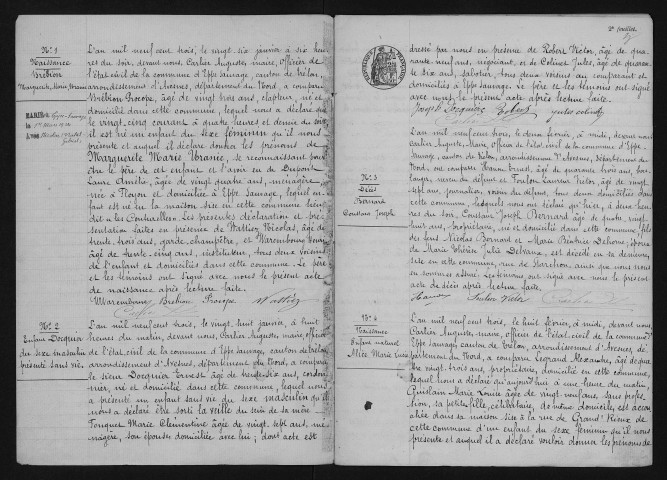 N° 1
Naissance
Brébion
Marguerite, Marie, Uranie
L'an mil neuf cent trois, le vingt-six janvier à six heu
res du soir, devant nous, Carlier Auguste, maire, Officier de
l'état civil de la commune d'Eppe Sauvage, canton de Trélon,
arrondissement d'Avesnes, département du Nord, a comparu
Brébion Procope, âgé de vingt trois ans, né et
domicilié dans cette commune, lequel nous a déclaré que
le vingt-cinq courant à quatre heures et demie du soir
il est né un enfant du sexe féminin qu'il nous
présente et auquel il déclare donner les prénoms de
Marguerite Marie Uranie, se reconnaissant pour
être le père de cet enfant et l'avoir eu de Dupont
Laure Amélie, âgée de vingt quatre ans, ménagère,
née à Floyon et domiciliée à Eppe Sauvage, lequel en
fant est né en la maison sise en cette commune lieu
dit Les présentes déclaration et pré
sentation faites en présence de Wattiez Nicolas, âgé de
trente trois ans, garde-champêtre, et Warembourg
âgé de trente-cinq ans, instituteur, tous deux voisins
de l'enfant et domiciliés dans cette commune. Le père
et les témoins ont signé avec nous le présent acte
de naissance après lecture faite.
Warembourg Brébion Procope Wattiez
N° 2
Enfant Docquier
du sexe masculin
présenté sans vie.
L'an mil neuf cent trois, le vingt huit janvier, à huit
heures du matin, devant nous, Carlier Auguste, maire, officier
de l'état civil de la commune d'Eppe Sauvage, canton de Trélon,
arrondissement d'Avesnes, département du Nord, a comparu
le sieur Docquier Ernest âgé de trente-six ans, cordon
nier, né et domicilié dans cette commune, lequel nous
a présenté un enfant sans vie du sexe masculin qu'il
nous a déclaré être sorti la veille du sein de sa mère
Marie Clémentine âgée de vingt sept ans, mé
nagère, son épouse domiciliée avec lui; dont acte est
2e feuillet.
dressé par nous en présence de Robert Victor, âgé de qua
rante-neuf ans, négociant, et de Colinet Jules, âgé de quaran
te six ans, sabotier, tous deux voisins du comparant et
domiciliés à Eppe Sauvage. Le père et les témoins ont si
gné avec nous le présent acte après lecture faite.
Robert Jules Colinet
N° 3
Décès
Bernard
Constant Joseph
L'an mil neuf cent trois, le deux février, à midi, devant nous,
Carlier Auguste, Maire, Officier de l'état civil de la commune d'Eppe-
Sauvage, canton de Trélon, arrondissement d'Avesnes, département du
Nord, ont comparu âgé de vingt neuf ans, bou
langer, neveu du défunt et Victor, âgé de vingt
sept ans, journalier, voisin du défunt, tous deux domiciliés dans
cette commune, lesquels nous ont déclaré qu'hier, à deux heu
res du soir, Constant Joseph Bernard âgé de quatre vingt
huit ans, propriétaire, né et domicilié dans cette commune, fils
des feus Nicolas Bernard et Marie Béatrice Delhove; époux
de Marie Thérèse Julie Delvaux, est décédé en sa demeure,
sise en cette commune, rue de ainsi que nous nous
en sommes assuré. Les témoins ont signé avec nous le présent
acte de décès après lecture faite.
N° 4
Naissance
Enfant naturel
Alice Marie
L'an mil neuf cent trois, le huit février, à midi, devant nous,
Carlier Auguste, maire, officier de l'état civil de la commune d'
Eppe Sauvage, canton de Trélon, arrondissement d'Avesnes, dé
partement du Nord, a comparu Legrand Alexandre, âgé de qua
tre vingt-trois ans, propriétaire, domicilié en cette commune,
lequel nous a déclaré qu'aujourd'hui à une heure du matin,
Ghislain Marie Louise âgée de vingt-neuf ans, sans profes
sion, sa petite fille, célibataire, de même domicile, est accou
chée dans sa maison sise à la rue de Grand' Rieux de
cette commune d'un enfant du sexe féminin qu'il nous
présente et auquel il a déclaré vouloir donner les prénoms de